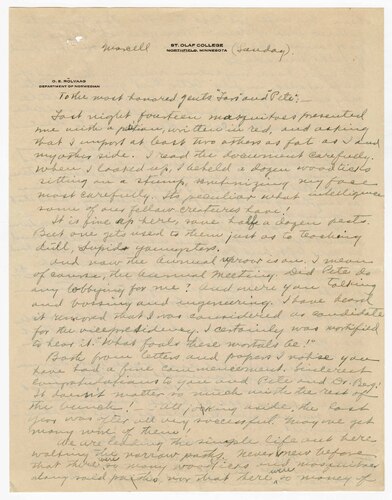 Marcell
ST. OLAF COLLEGE
NORTHFIELD, MINNESOTA
(Sunday)
O. E. RÖLVAAG
DEPARTMENT OF NORWEGIAN
To the most honored gents "Lars" and Pete":-
Last night fourteen mosquitoes presented
me with a petition, written in red, and asking
that I import at least two others as fat as I and
my other side. I read the document carefully.
When I looked up, I beheld a dozen woodticks
sitting on a stump, scrutinizing my face
most carefully. Its peculiar what intelligence
some of our fellow creatures have!
It is fine up here, save half a dozen pests.
But one gets used to them just as to teaching
dull, stupid youngsters.
And now the annual row is on. I mean
of course, the Annual Meeting. Did Pete do
any lobbying for me? And were you talking
and bossing and engineering. I have heard
it rumored that I was considered as candidate
for the vicepresidency. I certainly was
to hear it. "What fools these mortals be!"
Both from letters and papers I notice you
have had a fine commencement. Sincerest
congratulations to you and Pete and Dr. Bøy.
It doesn't matter so much with the rest of
the bunch! All joking aside, the last
year was after all very successful. May we get
many more of them.
We are leading the simple life out here
walking the narrow paths. Never before
that there were so many woodticks and mosquitoes
along said paths nor that there were so many of